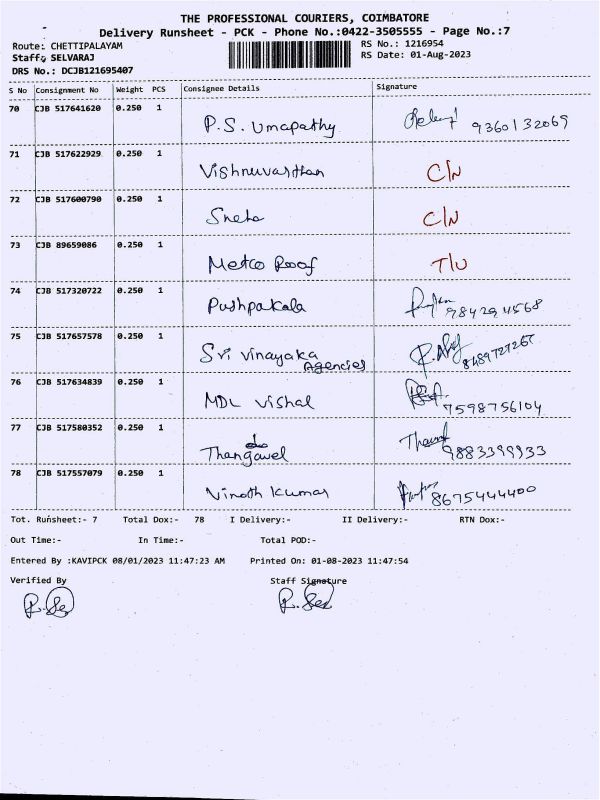 THE PROFESSIONAL COURIERS, COIMBATORE
Delivery Runsheet - PCK - Phone No.:0422-3505555 - Page No.:7
Route: CHETTIPALAYAM
RS No.: 1216954
Staff: SELVARAJ
RS Date: 01-Aug-2023
DRS No.: DCJB121695407
S No Consignment No Weight PCS Consignee Details Signature
70 CJB 517641620 0.250 1 P.S. Umapathy 9360132069
71 CJB 517622929 0.250 1 Vishnuvardhan C/N
72 CJB 517600790 0.250 1 Sneha C/N
73 CJB 89659086 0.250 1 Metco Roof T/U
74 CJB 517320722 0.250 1 Pushpakala 9842944568
75 CJB 517657578 0.250 1 Sri Vinayaka Agencies 8489727267
76 CJB 517634839 0.250 1 MDL Vishal 7598756104
77 CJB 517580352 0.250 1 Thangavel 9883399933
78 CJB 517557079 0.250 1 Vinoth Kumar 8675444400
Tot. Runsheet:- 7 Total Dox:- 78 I Delivery:- II Delivery:- RTN Dox:-
Out Time:- In Time:- Total POD:-
Entered By :KAVIPCK 08/01/2023 11:47:23 AM Printed On: 01-08-2023 11:47:54
Verified By Staff Signature